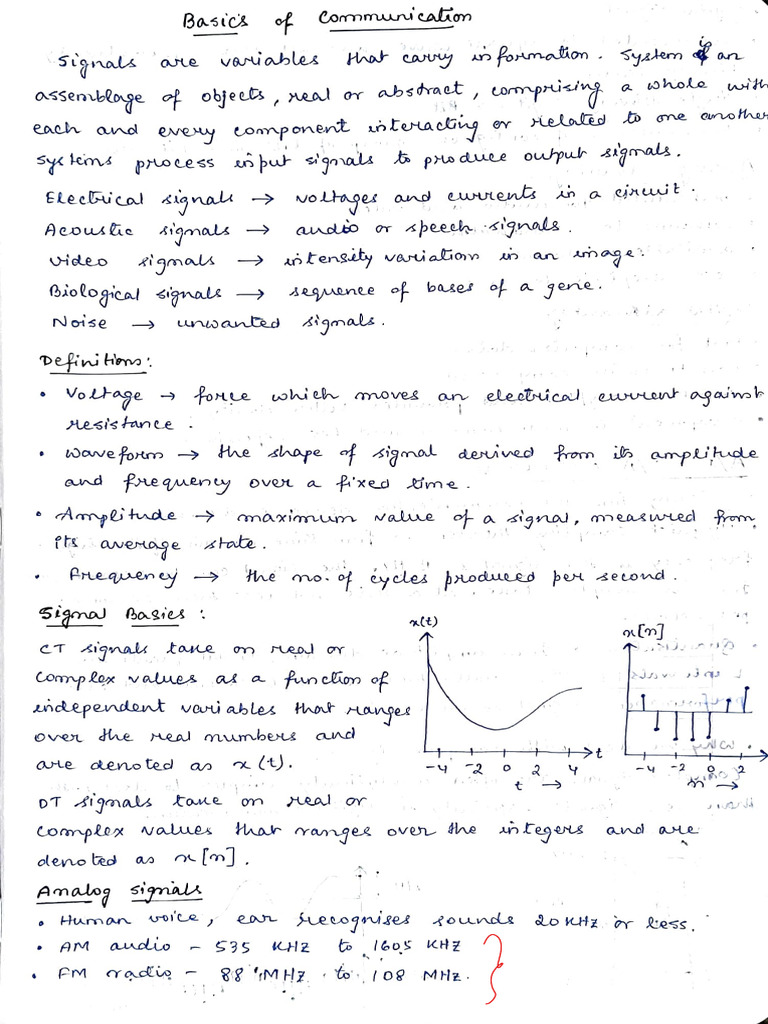 Basics of Communication
Signals are variables that carry information. System is an
assemblage of objects, real or abstract, comprising a whole with
each and every component interacting or related to one another
Systems process input signals to produce output signals.
Electrical signals → voltages and currents in a circuit.
Acoustic signals → audio or speech signals.
Video signals → intensity variation in an image.
Biological signals → sequence of bases of a gene.
Noise → unwanted signals.
Definitions:
• Voltage → force which moves an electrical current against
resistance.
• Waveform → the shape of signal derived from its amplitude
and frequency over a fixed time.
• Amplitude → maximum value of a signal, measured from
its average state.
• Frequency → the no. of cycles produced per second.
Signal Basics:
CT signals take on real or
complex values as a function of
independent variables that ranges
over the real numbers and
are denoted as x(t).
x(t)
-4 -2 0 2 4 t
t →
x[n]
-4 -2 0 2
n →
DT signals take on real or
complex values that ranges over the integers and are
denoted as x[n].
Analog signals
• Human voice, ear recognises sounds 20 KHz or less.
• AM audio - 535 KHz to 1605 KHz
• FM radio - 88 MHz to 108 MHz.